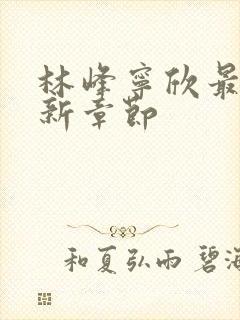 林峰寧欣最
新章節
和夏弘雨 碧海